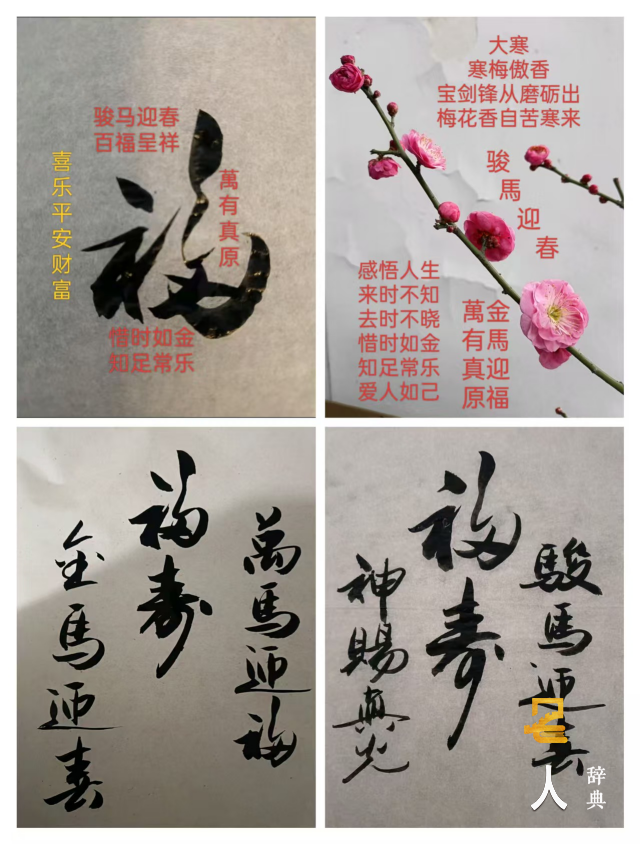 骏马迎春
百福呈祥
喜乐平安财富
福
萬有真原
惜时如金
知足常乐
大寒
寒梅傲香
宝剑锋从磨砺出
梅花香自苦寒来
骏馬迎春
感悟人生
来时不知
去时不晓
惜时如金
知足常乐
爱人如己
金馬迎福
萬有真原
萬馬迎福
福寿
金馬迎春
駿馬迎春
福寿
神賜真光
人
辞典